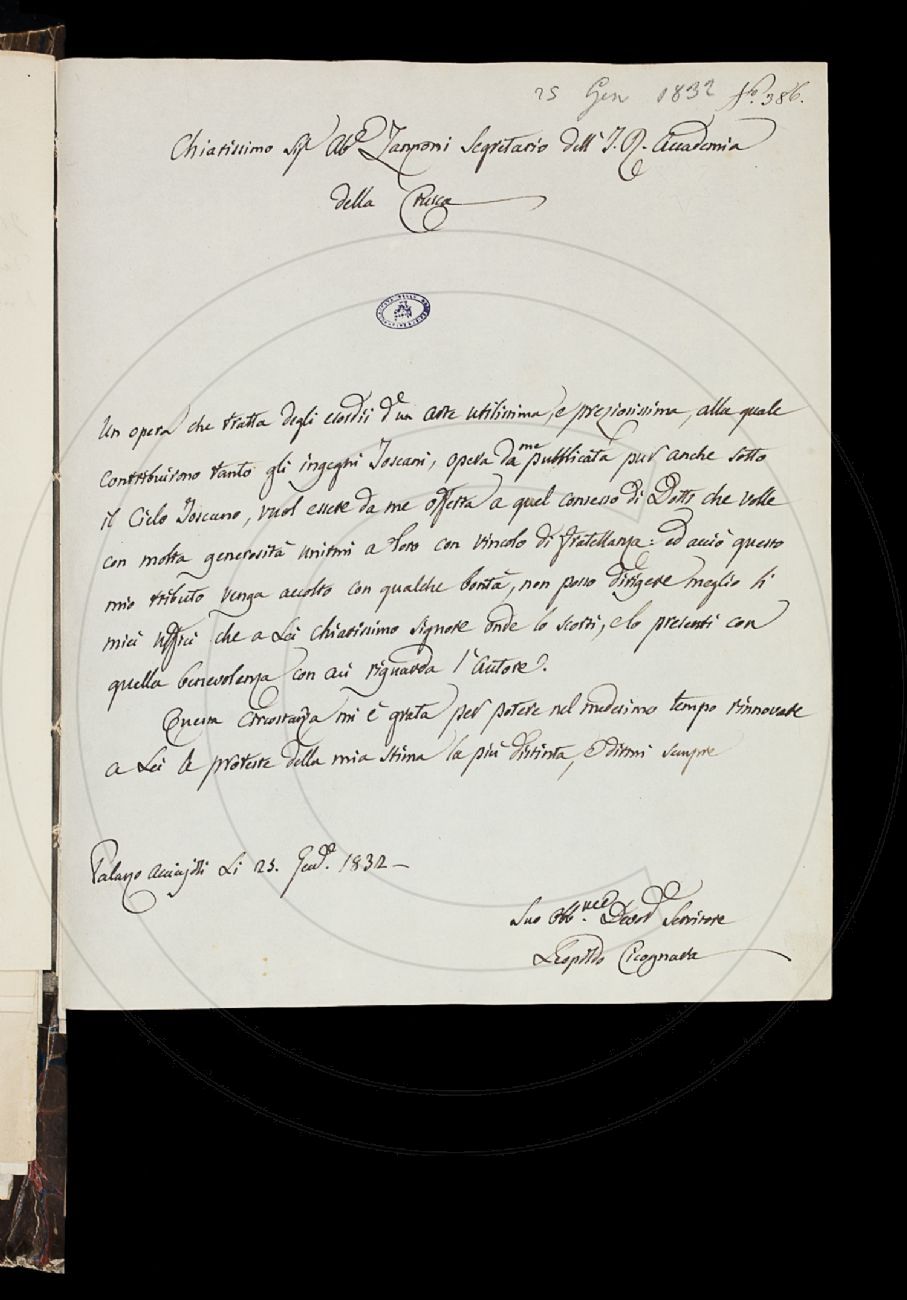 25 Gen 1832 N.o 386.
Chiarissimo Sigr Abe Zannoni Segretario dell' I. R. Accademia
della Crusca
Un opera che tratta degli esordii d'un arte utilissima, e preziosissima, alla quale
contribuirono tanto gli ingegni Toscani, opera da me pubblicata pur anche sotto
il Cielo Toscano, vuol essere da me offerta a quel consesso di Dotti che volle
con molta generosità unirmi a loro con vincolo di fratellanza: ed acciò questo
mio tributo venga accolto con qualche bontà, non posso dirigere meglio li
miei uffici che a Lei chiarissimo signore onde lo scorti, e lo presenti con
quella benevolenza con cui riguarda l'Autore.
Questa circostanza mi è grata per potere nel medesimo tempo rinnovare
a Lei le proteste della mia stima la più distinta, e dirmi sempre
Palazzo Acciajoli Li 25. Geno. 1832 –
Suo Obb.mo Devo Servitore
Leopoldo Cicognara